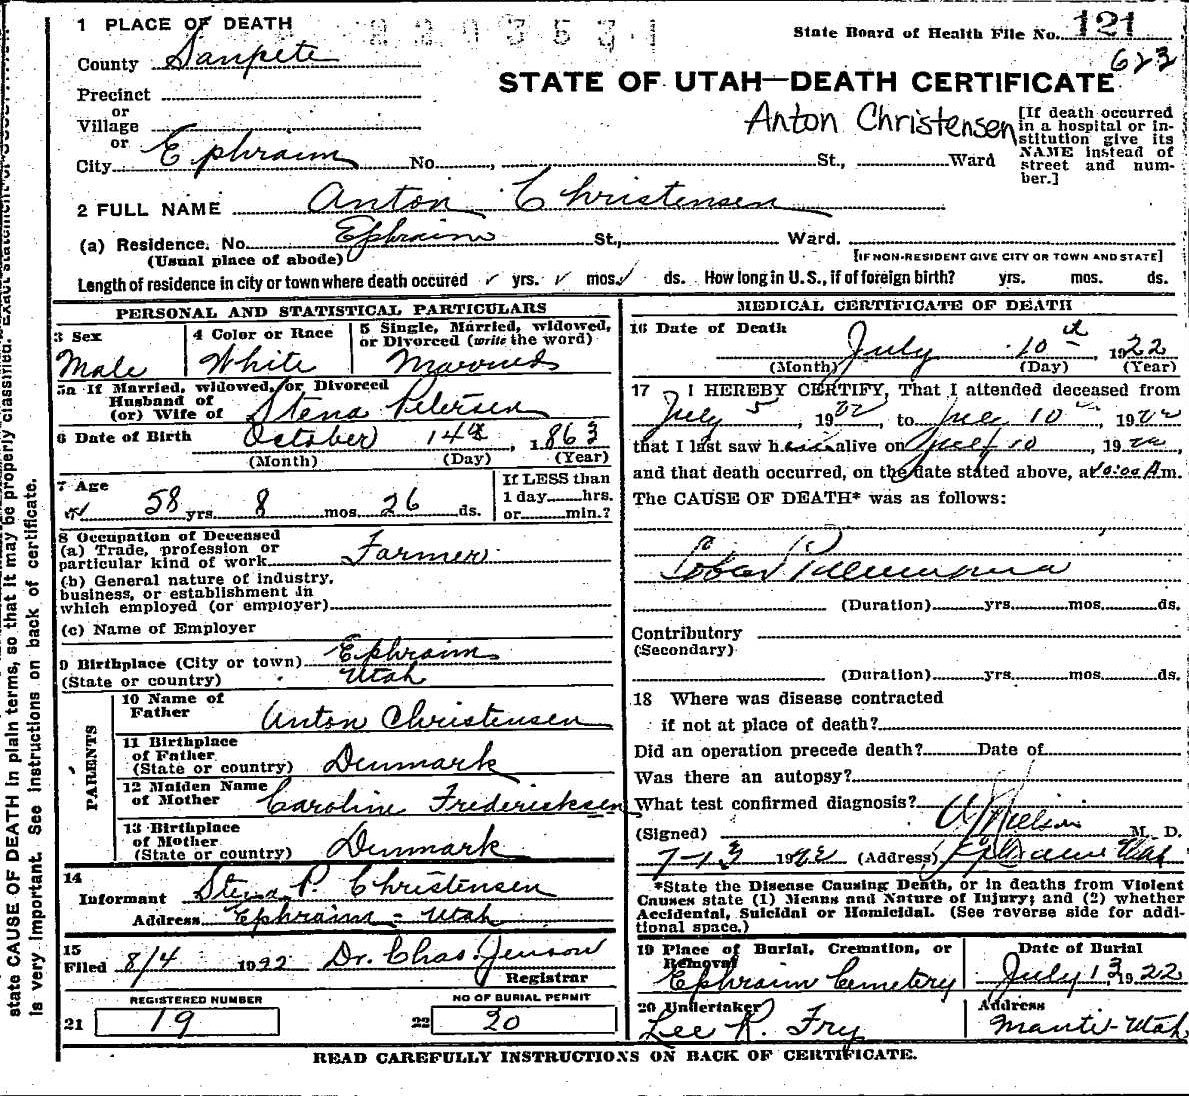 1 PLACE OF DEATH
State Board of Health File No. 121
623
County Sanpete
STATE OF UTAH—DEATH CERTIFICATE
Precinct
or
Village
or
Anton Christensen
[If death occurred in a hospital or institution give its NAME instead of street and number.]
City Ephraim No. , St., Ward
2 FULL NAME Anton Christensen
(a) Residence. No. Ephraim St., Ward.
(Usual place of abode) [IF NON-RESIDENT GIVE CITY OR TOWN AND STATE]
Length of residence in city or town where death occured yrs. mos. ds. How long in U.S., if of foreign birth? yrs. mos. ds.
PERSONAL AND STATISTICAL PARTICULARS
3 Sex Male
4 Color or Race White
5 Single, Married, widowed, or Divorced (write the word) Married
5a If Married, widowed, or Divorced
Husband of
(or) Wife of Stena Petersen
6 Date of Birth October 14th, 1863
(Month) (Day) (Year)
7 Age 58 yrs. 8 mos. 26 ds.
If LESS than
1 day hrs.
or min.?
8 Occupation of Deceased
(a) Trade, profession or
particular kind of work Farmer
(b) General nature of industry,
business, or establishment in
which employed (or employer)
(c) Name of Employer
9 Birthplace (City or town) Ephraim
(State or country) Utah
PARENTS
10 Name of
Father Anton Christensen
11 Birthplace
of Father
(State or country) Denmark
12 Maiden Name
of Mother Caroline Fredericksen
13 Birthplace
of Mother
(State or country) Denmark
14
Informant Stena P. Christensen
Address Ephraim - Utah
15
Filed 8/4 1922 Dr. Chas. Jenson
Registrar
REGISTERED NUMBER
21 19
NO OF BURIAL PERMIT
22 20
MEDICAL CERTIFICATE OF DEATH
16 Date of Death July 10th, 1922
(Month) (Day) (Year)
17 I HEREBY CERTIFY, That I attended deceased from
July 5, 1922, to July 10, 1922
that I last saw him alive on July 10 1922,
and that death occurred, on the date stated above, at 10:00 A m.
The CAUSE OF DEATH* was as follows:
Lobar Pneumonia
(Duration) yrs. mos. ds.
Contributory
(Secondary)
(Duration) yrs. mos. ds.
18 Where was disease contracted
if not at place of death?
Did an operation precede death? Date of
Was there an autopsy?
What test confirmed diagnosis?
(Signed) Nielson M. D.
7-13 1922 (Address) Ephraim Utah
*State the Disease Causing Death, or in deaths from Violent
Causes state (1) Means and Nature of Injury; and (2) whether
Accidental, Suicidal or Homicidal. (See reverse side for addi-
tional space.)
19 Place of Burial, Cremation, or
Removal
Ephraim Cemetery
Date of Burial
July 13 1922
20 Undertaker
Lee R. Fry
Address
Manti - Utah
READ CAREFULLY INSTRUCTIONS ON BACK OF CERTIFICATE.
state CAUSE OF DEATH in plain terms, so that it may be properly classified. Exact statement of
is very important. See instructions on back of certificate.